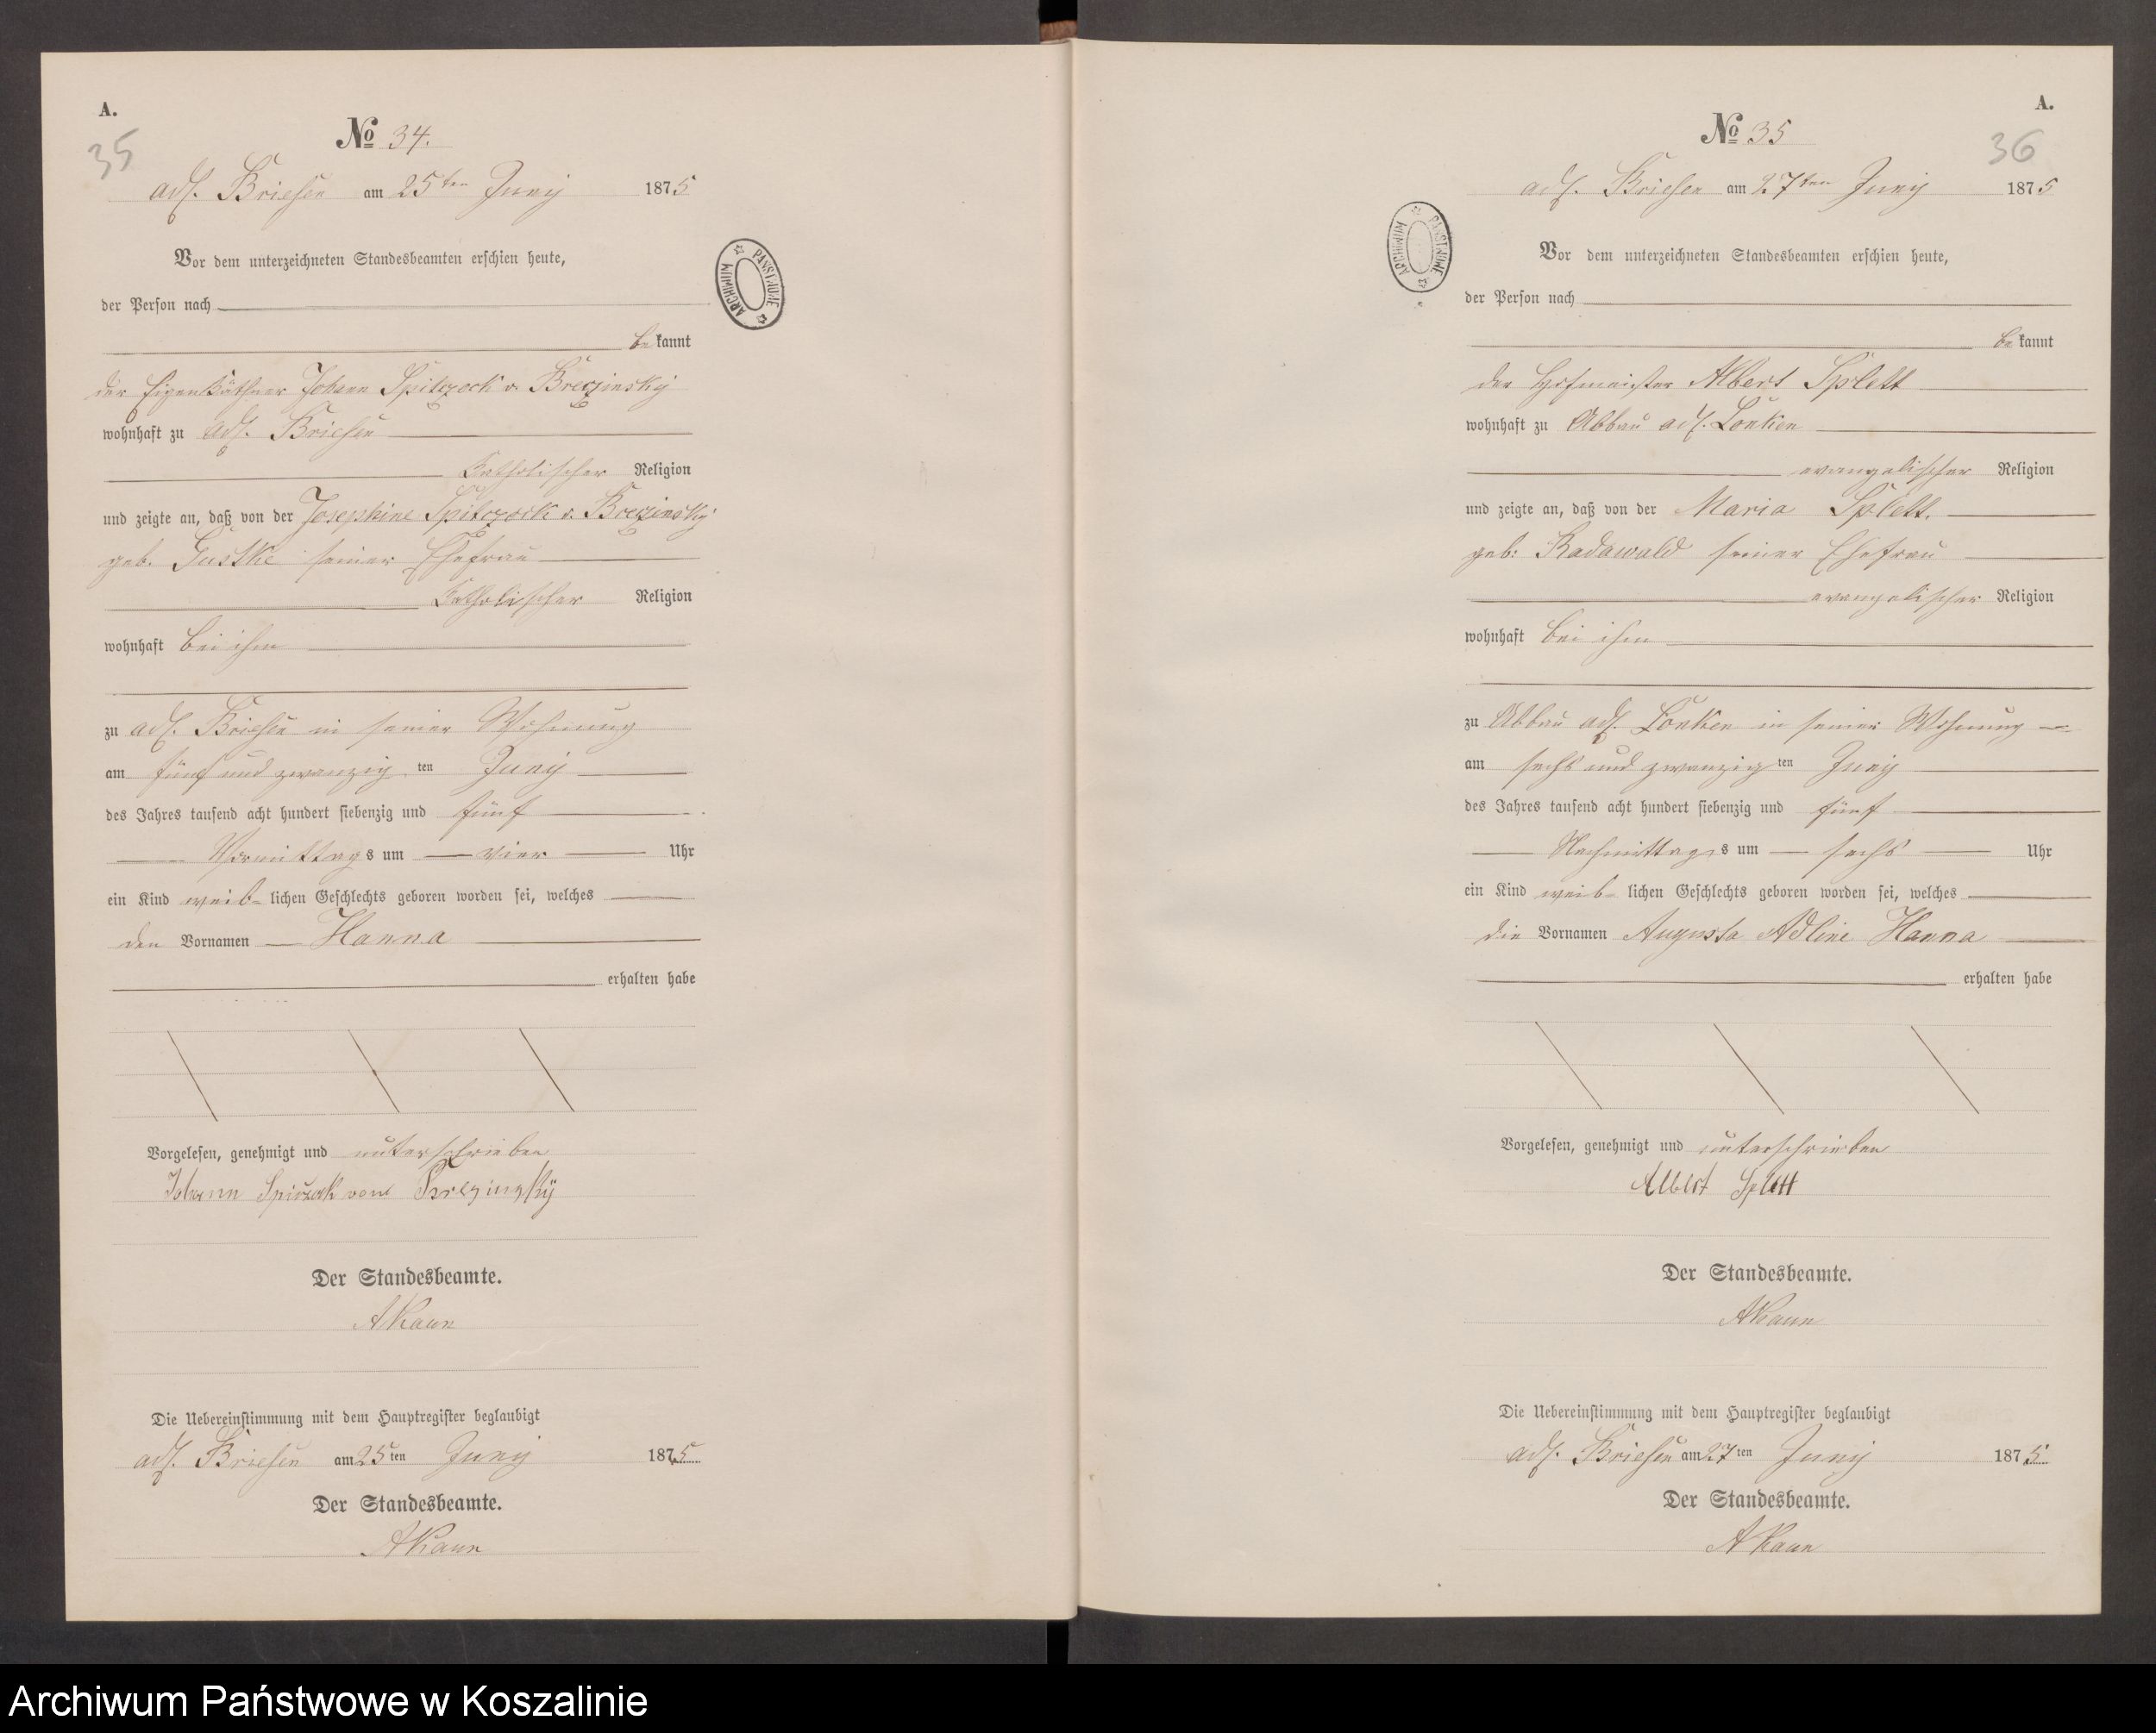 A.
35
No 34.
adl. Briesen am 25ten Juny 1875
Vor dem unterzeichneten Standesbeamten erschien heute,
der Person nach
bekannt
der Eigenkäthner Johann Spitczock v. Breczinsky
wohnhaft zu adl. Briesen
Katholischer Religion
und zeigte an, daß von der Josephine Spitczock v. Breczinsky
geb. Gustke seiner Ehefrau
Katholischer Religion
wohnhaft bei ihm
zu adl. Briesen in seiner Wohnung
am fünf und zwanzig ten Juny
des Jahres tausend acht hundert siebenzig und fünf
Vormittags um vier Uhr
ein Kind weib- lichen Geschlechts geboren worden sei, welches
den Vornamen Hanna
erhalten habe
Vorgelesen, genehmigt und unterschrieben
Johann Spiczak von Brezinsky
Der Standesbeamte.
AKaun
Die Uebereinstimmung mit dem Hauptregister beglaubigt
adl. Briesen am 25ten Juny 1875
Der Standesbeamte.
AKaun
ARCHIWUM PAŃSTWOWE
A.
36
No 35
adl. Briesen am 27ten Juny 1875
Vor dem unterzeichneten Standesbeamten erschien heute,
der Person nach
bekannt
der Hofmeister Albert Splett
wohnhaft zu Abbau adl. Lonken
evangelischer Religion
und zeigte an, daß von der Maria Splett.
geb: Radawald seiner Ehefrau
evangelischer Religion
wohnhaft bei ihm
zu Abbau adl. Lonken in seiner Wohnung
am sechs und zwanzig ten Juny
des Jahres tausend acht hundert siebenzig und fünf
Nachmittags um sechs Uhr
ein Kind weib- lichen Geschlechts geboren worden sei, welches
die Vornamen Augusta Adline Hanna
erhalten habe
Vorgelesen, genehmigt und unterschrieben
Albert Splett
Der Standesbeamte.
AKaun
Die Uebereinstimmung mit dem Hauptregister beglaubigt
adl. Briesen am 27ten Juny 1875
Der Standesbeamte.
AKaun
ARCHIWUM PAŃSTWOWE
Archiwum Państwowe w Koszalinie